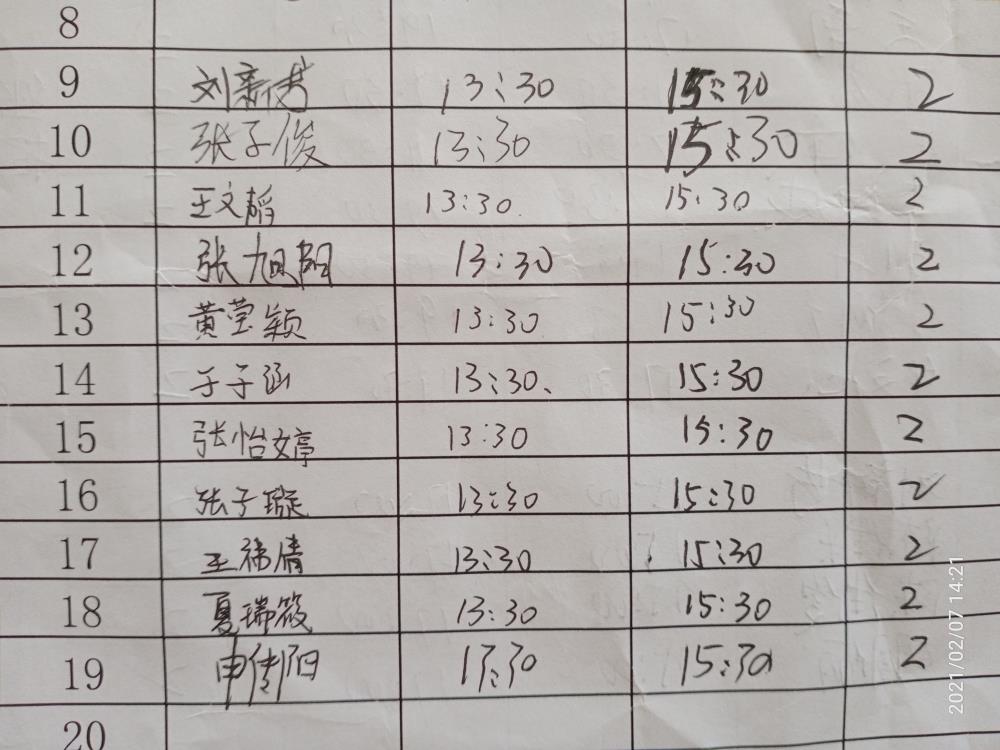 8
9 刘新秀 13:30 15:30 2
10 张子俊 13:30 15:30 2
11 王文韬 13:30. 15:30 2
12 张旭阳 13:30 15:30 2
13 黄莹颖 13:30 15:30 2
14 于子涵 13:30、 15:30 2
15 张怡婷 13:30 15:30 2
16 张子璇 13:30 15:30 2
17 王祎倩 13:30 15:30 2
18 夏瑞筱 13:30 15:30 2
19 申 阳 13:30 15:30 2
20
2021/02/07 14:21